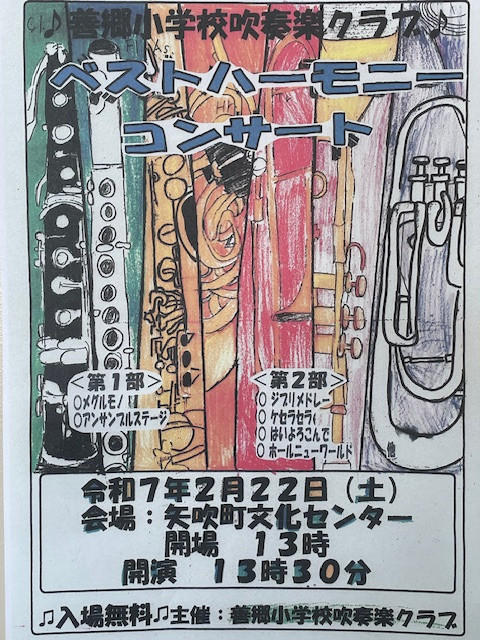 ♪善郷小学校吹奏楽クラブ♪
ベストハーモニー
コンサート
<第1部>
○メグルモノ
○アンサンブルステージ
<第2部>
○ジブリメドレー
○ケセラセラ
○はいよろこんで
○ホールニューワールド
他
令和7年2月22日(土)
会場:矢吹町文化センター
開場 13時
開演 13時30分
♫入場無料♫主催:善郷小学校吹奏楽クラブ